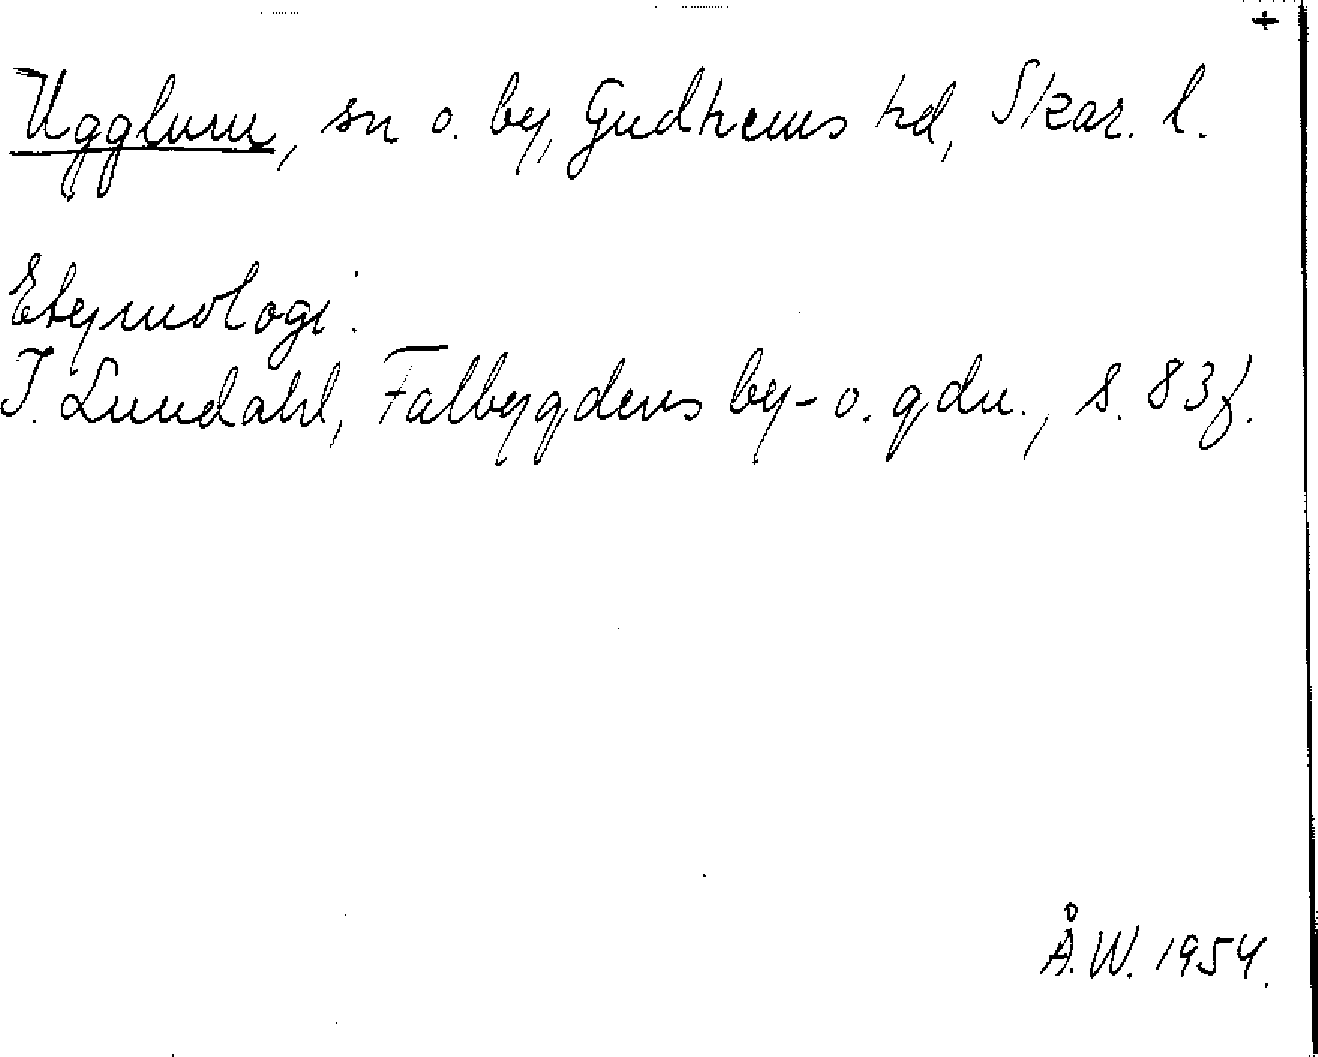 Ugglum, sn o. by, Gudhems hd, Skar. l.
Etymologi:
I. Lundahl, Falbygdens by- o. gdn., s. 83 f.
Å.W. 1954.